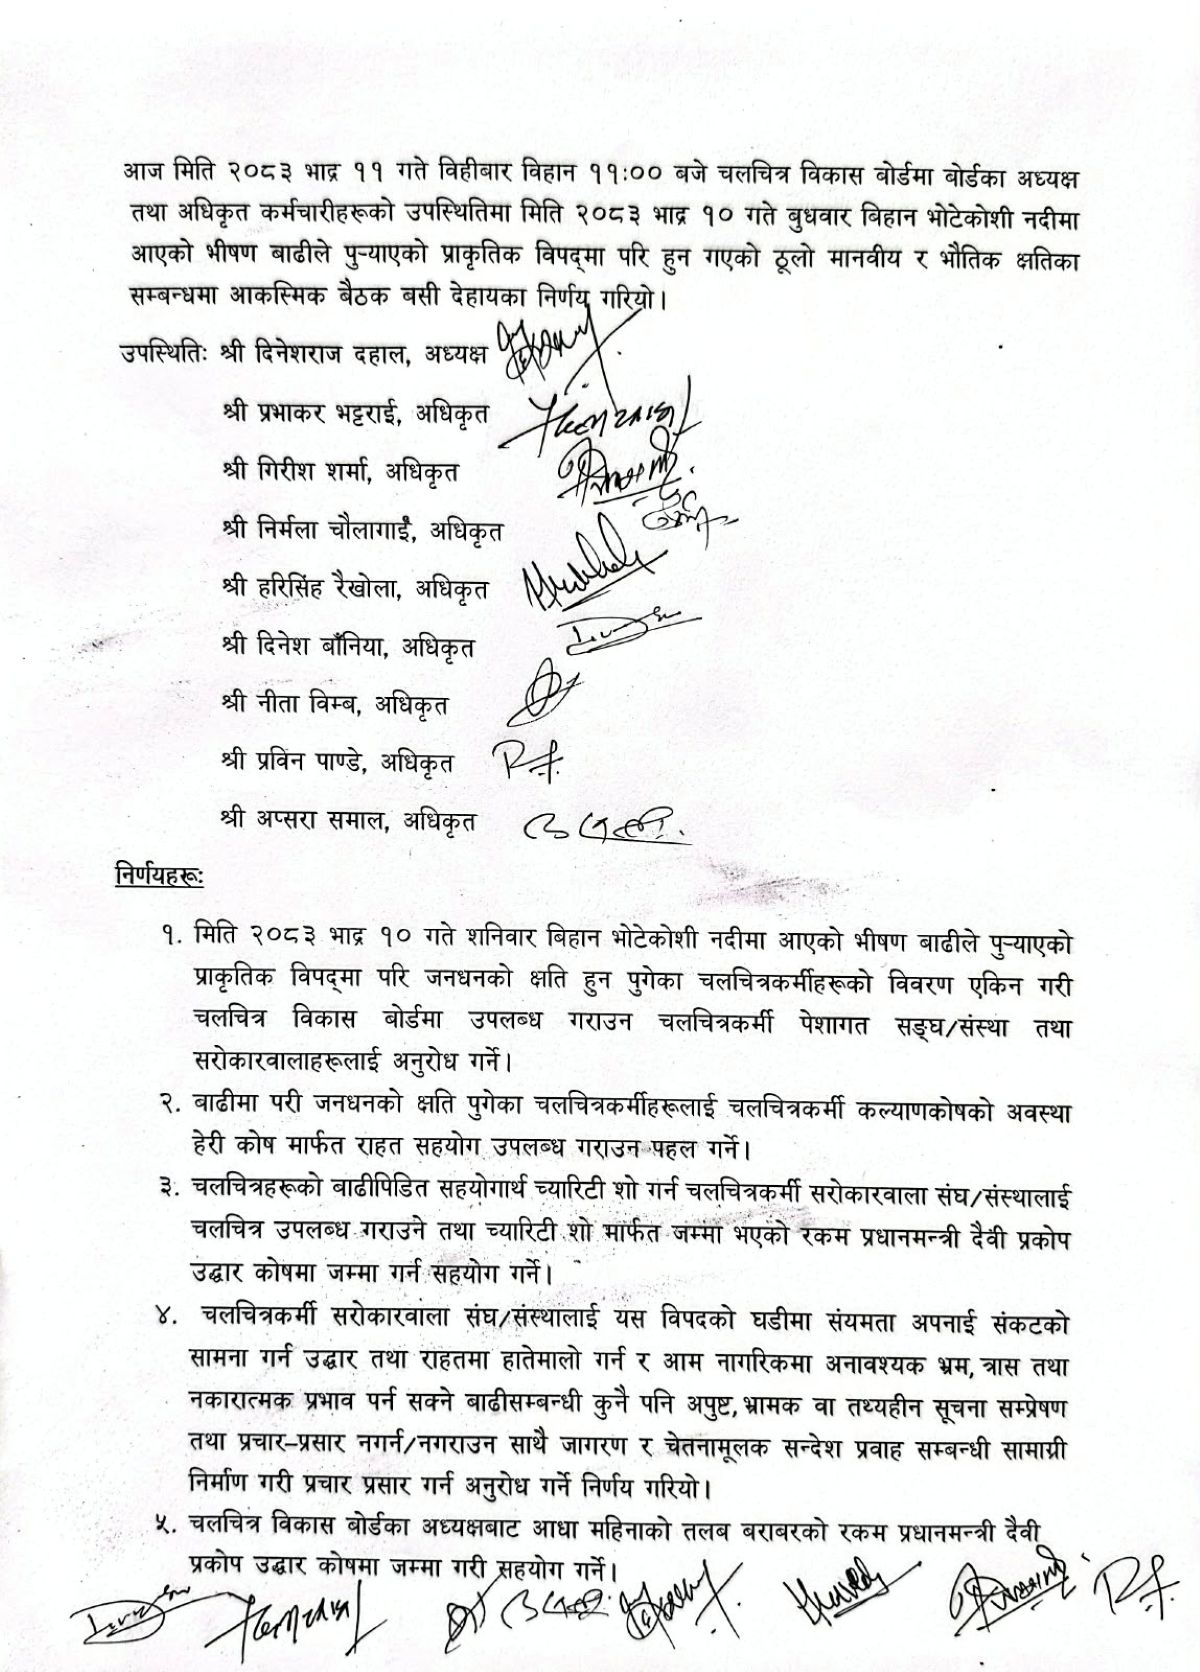 आज मिति २०८३ भाद्र ११ गते विहीबार विहान ११:०० बजे चलचित्र विकास बोर्डमा बोर्डका अध्यक्ष
तथा अधिकृत कर्मचारीहरूको उपस्थितिमा मिति २०८३ भाद्र १० गते बुधवार बिहान भोटेकोशी नदीमा
आएको भीषण बाढीले पुर्‍याएको प्राकृतिक विपद्‌मा परि हुन गएको ठूलो मानवीय र भौतिक क्षतिका
सम्बन्धमा आकस्मिक बैठक बसी देहायका निर्णय गरियो।
उपस्थितिः श्री दिनेशराज दहाल, अध्यक्ष
श्री प्रभाकर भट्टराई, अधिकृत
श्री गिरीश शर्मा, अधिकृत
श्री निर्मला चौलागाईं, अधिकृत
श्री हरिसिंह रैखोला, अधिकृत
श्री दिनेश बाँनिया, अधिकृत
श्री नीता विम्ब, अधिकृत
श्री प्रविन पाण्डे, अधिकृत
श्री अप्सरा समाल, अधिकृत
निर्णयहरूः
१. मिति २०८३ भाद्र १० गते शनिवार बिहान भोटेकोशी नदीमा आएको भीषण बाढीले पुर्‍याएको
प्राकृतिक विपद्‌मा परि जनधनको क्षति हुन पुगेका चलचित्रकर्मीहरूको विवरण एकिन गरी
चलचित्र विकास बोर्डमा उपलब्ध गराउन चलचित्रकर्मी पेशागत सङ्घ/संस्था तथा
सरोकारवालाहरूलाई अनुरोध गर्ने।
२. बाढीमा परी जनधनको क्षति पुगेका चलचित्रकर्मीहरूलाई चलचित्रकर्मी कल्याणकोषको अवस्था
हेरी कोष मार्फत राहत सहयोग उपलब्ध गराउन पहल गर्ने।
३. चलचित्रहरूको बाढीपिडित सहयोगार्थ च्यारिटी शो गर्न चलचित्रकर्मी सरोकारवाला संघ/संस्थालाई
चलचित्र उपलब्ध गराउने तथा च्यारिटी शो मार्फत जम्मा भएको रकम प्रधानमन्त्री दैवी प्रकोप
उद्धार कोषमा जम्मा गर्न सहयोग गर्ने।
४. चलचित्रकर्मी सरोकारवाला संघ/संस्थालाई यस विपदको घडीमा संयमता अपनाई संकटको
सामना गर्न उद्धार तथा राहतमा हातेमालो गर्न र आम नागरिकमा अनावश्यक भ्रम, त्रास तथा
नकारात्मक प्रभाव पर्न सक्ने बाढीसम्बन्धी कुनै पनि अपुष्ट, भ्रामक वा तथ्यहीन सूचना सम्प्रेषण
तथा प्रचार-प्रसार नगर्न/नगराउन साथै जागरण र चेतनामूलक सन्देश प्रवाह सम्बन्धी सामाग्री
निर्माण गरी प्रचार प्रसार गर्न अनुरोध गर्ने निर्णय गरियो।
५. चलचित्र विकास बोर्डका अध्यक्षबाट आधा महिनाको तलब बराबरको रकम प्रधानमन्त्री दैवी
प्रकोप उद्धार कोषमा जम्मा गरी सहयोग गर्ने।